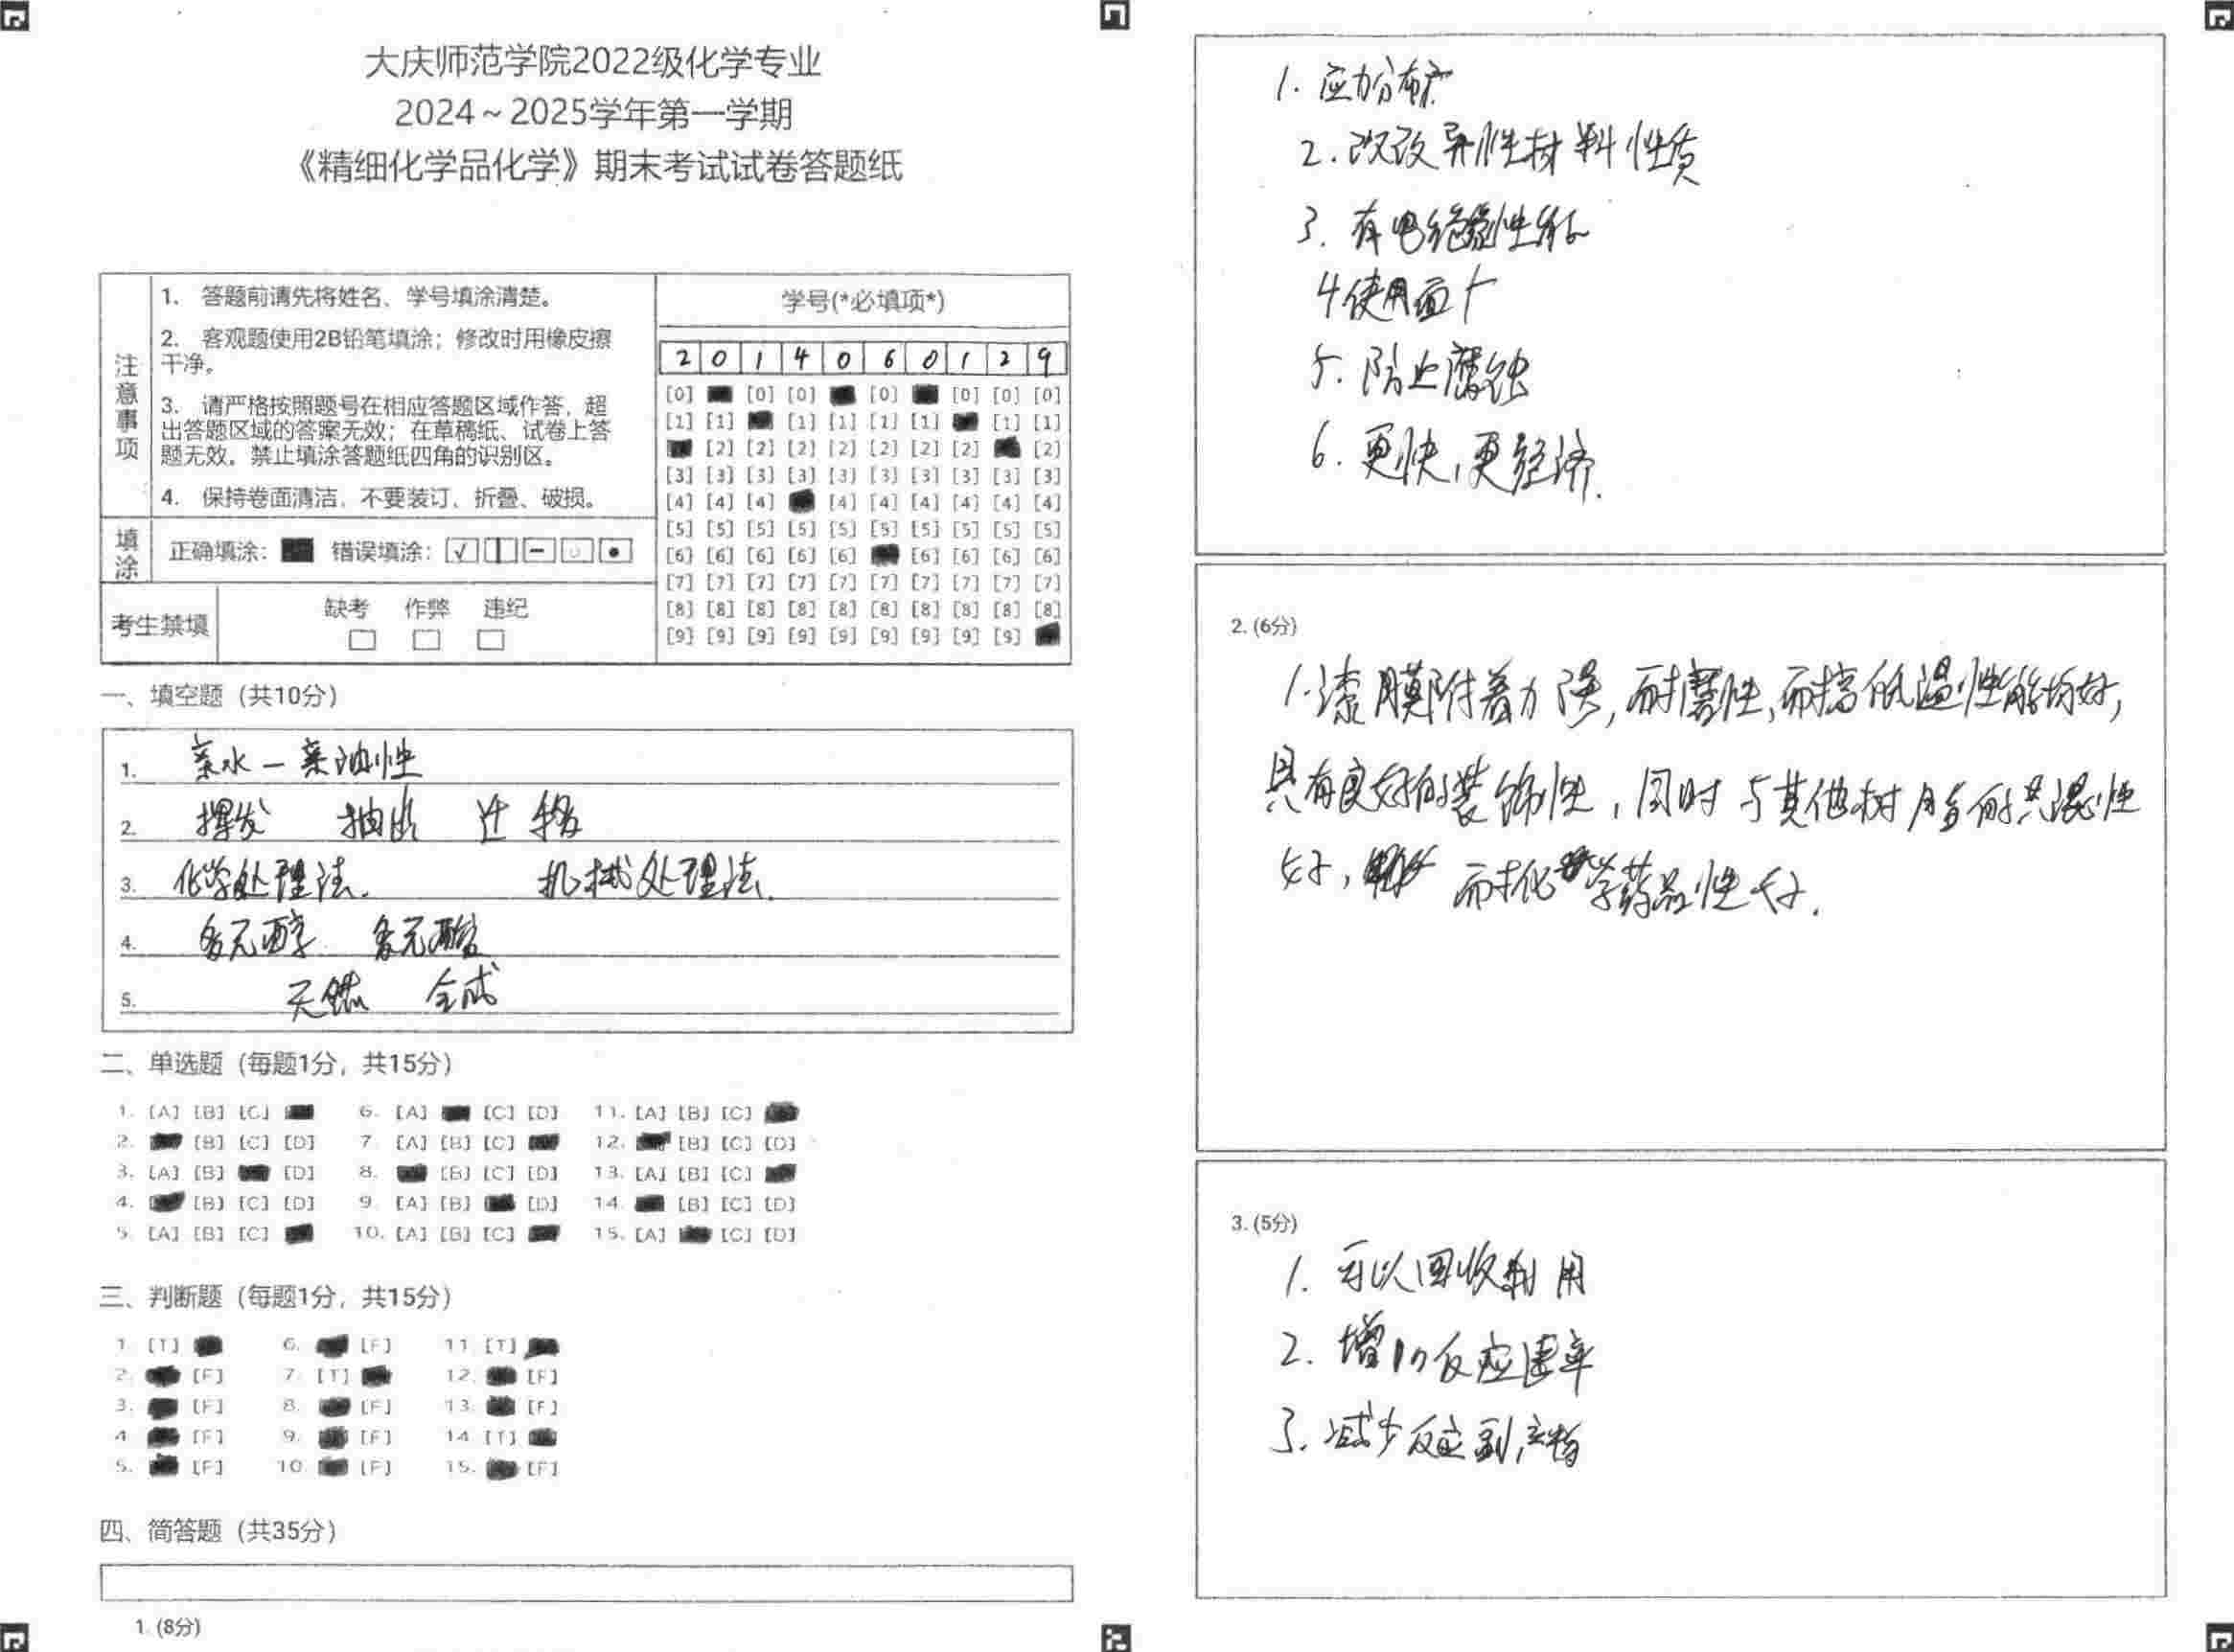 大庆师范学院2022级化学专业
2024～2025学年第一学期
《精细化学品化学》期末考试试卷答题纸
注意事项
1. 答题前请先将姓名、学号填涂清楚。
2. 客观题使用2B铅笔填涂；修改时用橡皮擦
干净。
3. 请严格按照题号在相应答题区域作答，超
出答题区域的答案无效；在草稿纸、试卷上答
题无效。禁止填涂答题纸四角的识别区。
4. 保持卷面清洁，不要装订、折叠、破损。
填涂
正确填涂： 错误填涂：
考生禁填
缺考 作弊 违纪
学号(*必填项*)
2 0 1 4 0 6 0 1 2 9
[0] [0] [0] [0] [0] [0] [0]
[1] [1] [1] [1] [1] [1] [1] [1]
[2] [2] [2] [2] [2] [2] [2] [2]
[3] [3] [3] [3] [3] [3] [3] [3] [3] [3]
[4] [4] [4] [4] [4] [4] [4] [4] [4]
[5] [5] [5] [5] [5] [5] [5] [5] [5] [5]
[6] [6] [6] [6] [6] [6] [6] [6] [6]
[7] [7] [7] [7] [7] [7] [7] [7] [7] [7]
[8] [8] [8] [8] [8] [8] [8] [8] [8] [8]
[9] [9] [9] [9] [9] [9] [9] [9] [9]
一、填空题（共10分）
1. 亲水一亲油性
2. 挥发 抽出 迁移
3. 化学处理法. 机械处理法.
4. 多元醇 多元酸
5. 天然 合成
二、单选题（每题1分，共15分）
1. [A] [B] [C] 6. [A] [C] [D] 11. [A] [B] [C]
2. [B] [C] [D] 7. [A] [B] [C] 12. [B] [C] [D]
3. [A] [B] [D] 8. [B] [C] [D] 13. [A] [B] [C]
4. [B] [C] [D] 9. [A] [B] [D] 14. [B] [C] [D]
5. [A] [B] [C] 10. [A] [B] [C] 15. [A] [C] [D]
三、判断题（每题1分，共15分）
1. [T] 6. [F] 11. [T]
2. [F] 7. [T] 12. [F]
3. [F] 8. [F] 13. [F]
4. [F] 9. [F] 14. [T]
5. [F] 10. [F] 15. [F]
四、简答题（共35分）
1. (8分)
1. 应力分布广
2. 改改异性材料性质
3. 有电绝缘性能
4 使用面广
5. 防止腐蚀
6. 更快，更经济.
2. (6分)
1. 漆膜附着力强，耐磨性，耐搞低温性能均好，
具有良好的装饰性，同时与其他树脂耐共混性
好， 耐化学药品性好.
3. (5分)
1. 可以回收利用
2. 增加反应速率
3. 减少反应副产物